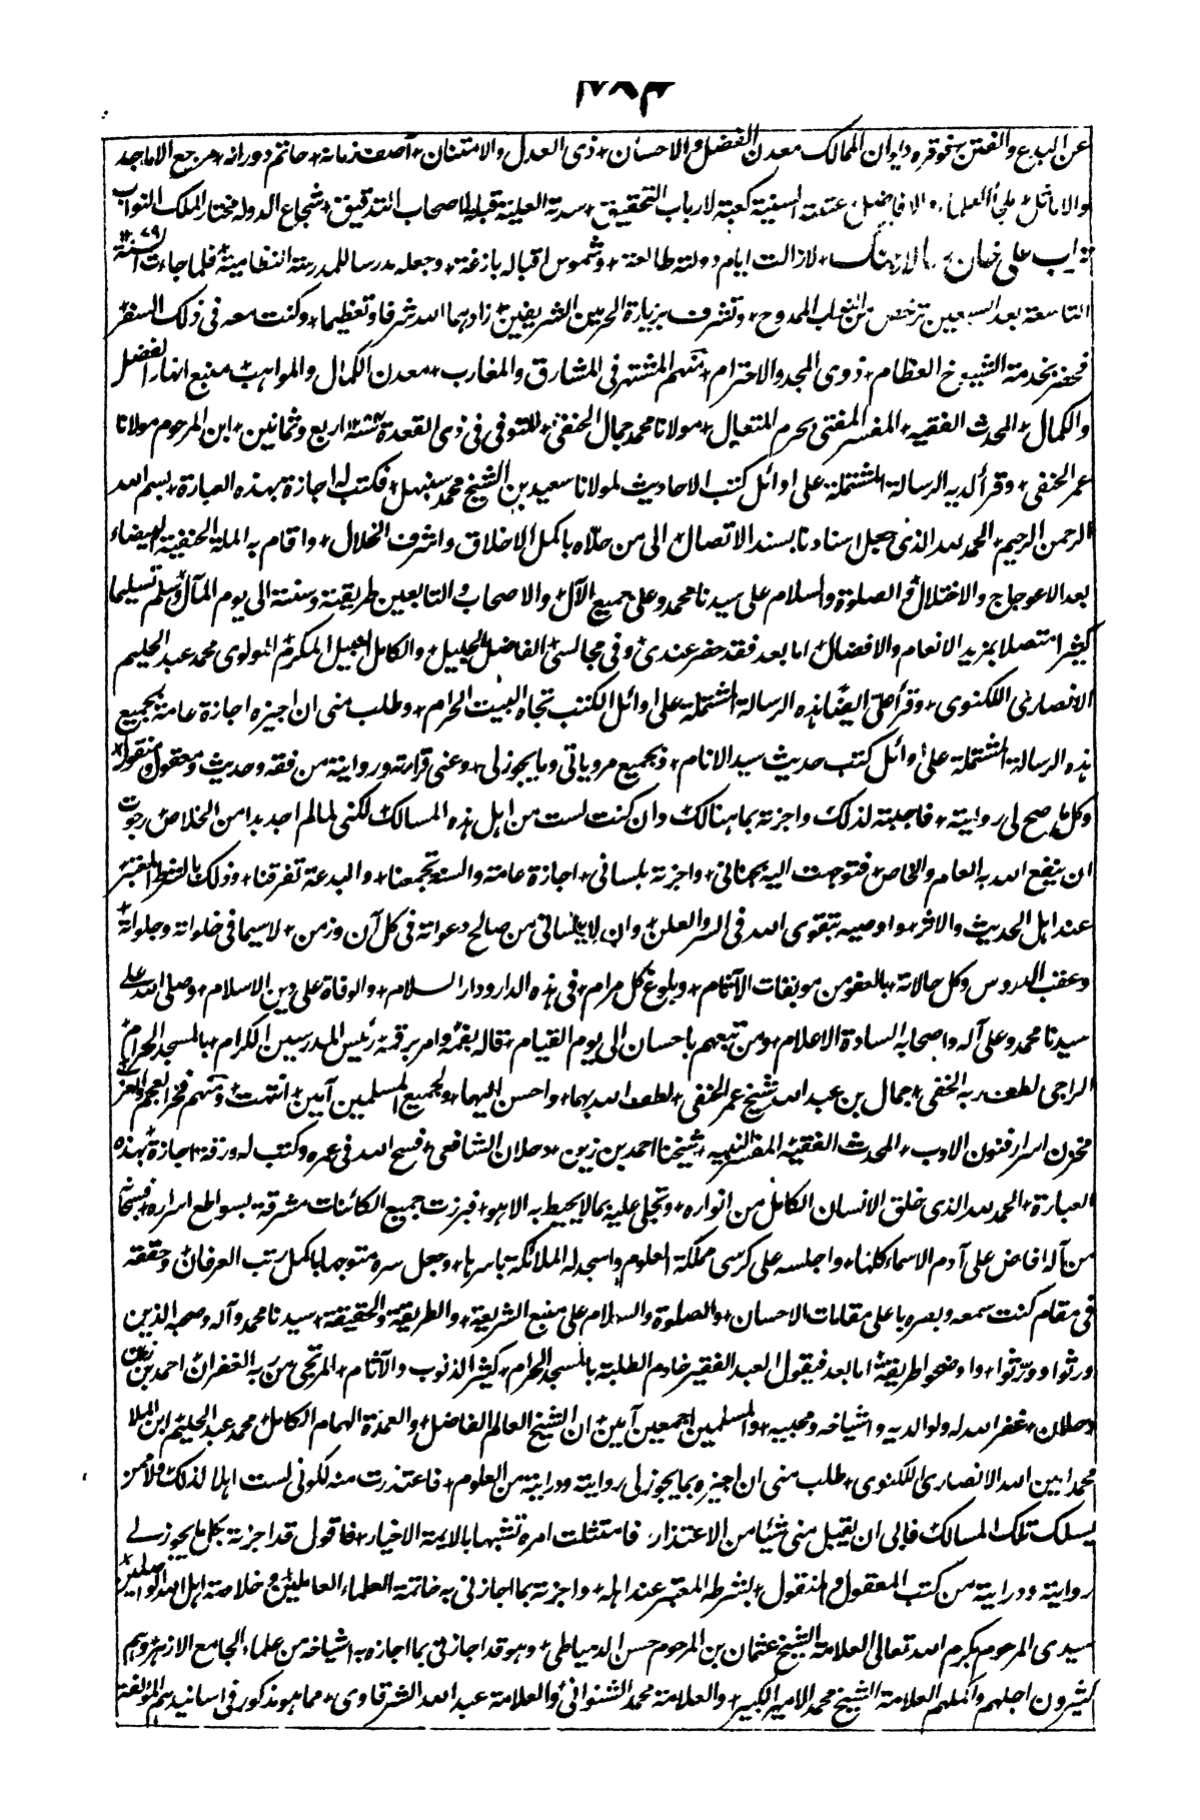 عن البدع والفتن بخوقره ديوان الممالك معدن الفضل والاحسان ذى العدل والامتنان آصف زمانه حاتم دورانه مرجع الاماجد
والاماثل ملجأ العلماء والافاضل عتبته السنية كعبة لارباب التحقيق سدته العلية قبلة لاصحاب التدقيق شجاع الدوله مختار الملك النواب
تراب على خان لازالت ايام دولته طالعة وشموس اقباله بازغة وجعله مدرسا للمدرسة النظامية فلما جاءت السنة
التاسعة بعد السبعين ترخص من النواب الممدوح وتشرف بزيارة الحرمين الشريفين زادهما الله شرفا وتعظيما وكنت معه فى ذلك السفر
فحضر بخدمة الشيوخ العظام ذوى المجد والاحترام منهم المشتهر فى المشارق والمغارب معدن الكمال والمواهب منبع انهار الفضل
والكمال المحدث الفقيه المفسر المفتى بحرم المتعال مولانا محمد جمال الحنفى المتوفى فى ذى القعدة سنة اربع وثمانين ابن المرحوم مولانا
عمر الحنفى وقرأ لديه الرسالة المشتملة على اوائل كتب الاحاديث لمولانا سعيد بن الشيخ محمد سنبل فكتب له اجازة بهذه العبارة بسم الله
الرحمن الرحيم الحمد لله الذى جعل اسنادنا بسند الاتصال الى من حلاه باكمل الاخلاق واشرف الخلال واقام به الملة الحنفية البيضاء
بعد الاعوجاج والاختلال والصلوة والسلام على سيدنا محمد وعلى جميع الآل والاصحاب والتابعين طريقته وسنته الى يوم المآل وسلم تسليما
كثيرا متصلا بمزيد الانعام والافضال اما بعد فقد حضر عندى وفى مجالسى الفاضل الجليل والكامل النبيل المكرم المولوى محمد عبد الحليم
الانصارى اللكنوى وقرأ على ايضا هذه الرسالة المشتملة على اوائل الكتب تجاه البيت الحرام وطلب منى ان اجيزه اجازة عامة بجميع
هذه الرسالة المشتملة على اوائل كتب حديث سيد الانام وبجميع مروياتى وما يجوز لى وعنى قراءته وروايته من فقه وحديث ومعقول ومنقول
وكل ما صح لى روايته فاجبته لذلك واجزته بما هنالك وان كنت لست من اهل هذه المسالك لكنى لما لم اجد بدا من الخلاص رجوت
ان ينفع الله به العام والخاص فتوجهت اليه بجنانى واجزته بلسانى اجازة عامة والسنة تجمعنا والبدعة تفرقنا وذلك بالشرط المعتبر
عند اهل الحديث والاثر واوصيه بتقوى الله فى السر والعلن وان لا ينسانى من صالح دعواته فى كل آن وزمن لاسيما فى خلواته وجلواته
وعقب الدروس وكل حالاته بالعفو من موبقات الآثام وبلوغ كل مرام فى هذه الدار ودار السلام والوفاة على دين الاسلام وصلى الله على
سيدنا محمد وعلى آله واصحابه السادة الاعلام ومن تبعهم باحسان الى يوم القيام قاله بفمه وامر برقمه رئيس المدرسين الكرام بالمسجد الحرام
الراجى لطف ربه الخفى جمال بن عبد الله شيخ عمر الحنفى لطف الله بهما واحسن اليهما ولجميع المسلمين آمين انتهت ومنهم فخر العجم والعرب
مخزن اسرار فنون الادب المحدث الفقيه المفسر النبيه شيخنا احمد بن زين دحلان الشافعى فسح الله فى عمره وكتب له ورقة اجازة بهذه
العبارة الحمد لله الذى خلق الانسان الكامل من انواره وتجلى عليه بما لا يحيط به الا هو فبرزت جميع الكائنات مشرقة بسواطع اسراره فسبحان
من آله افاض على آدم الاسماء كلها واجلسه على كرسى مملكة العلوم واسجد له الملائكة باسرها وجعل سره متوجها باكمل رتب العرفان وحققه
فى مقام كنت سمعه وبصره باعلى مقامات الاحسان والصلوة والسلام على منبع الشريعة والطريقة والحقيقة سيدنا محمد وآله وصحبه الذين
ورثوا وورّثوا واوضحوا طريقته اما بعد فيقول العبد الفقير خادم الطلبة بالمسجد الحرام كثير الذنوب والآثام المرتجى من ربه الغفران احمد بن زين
دحلان غفر الله له ولوالديه واشياخه ومحبيه والمسلمين اجمعين آمين ان الشيخ العالم الفاضل والعمدة الهمام الكامل محمد عبد الحليم ابن الملا
محمد امين الله الانصارى اللكنوى طلب منى ان اجيزه بما يجوز لى روايته ودرايته من العلوم فاعتذرت منه لكونى لست اهلا لذلك ولا ممن
يسلك تلك المسالك فابى ان يقبل منى شيئا من الاعتذار فامتثلت امره تشبها بالايمة الاخيار فاقول قد اجزته بكل ما يجوز لى
روايته ودرايته من كتب المعقول والمنقول بشرطه المعتبر عند اهله واجزته بما اجازنى به خاتمة العلماء العاملين وخلاصة اهل الله الواصلين
سيدى المرحوم بكرم الله تعالى العلامة الشيخ عثمان بن المرحوم حسن الدمياطى وهو قد اجازنى بما اجازه به اشياخه من علماء الجامع الازهر وهم
كثيرون اجلهم واكملهم العلامة الشيخ محمد الامير الكبير والعلامة محمد الشنوانى والعلامة عبد الله الشرقاوى مما هو مذكور فى اسانيدهم المؤلفة